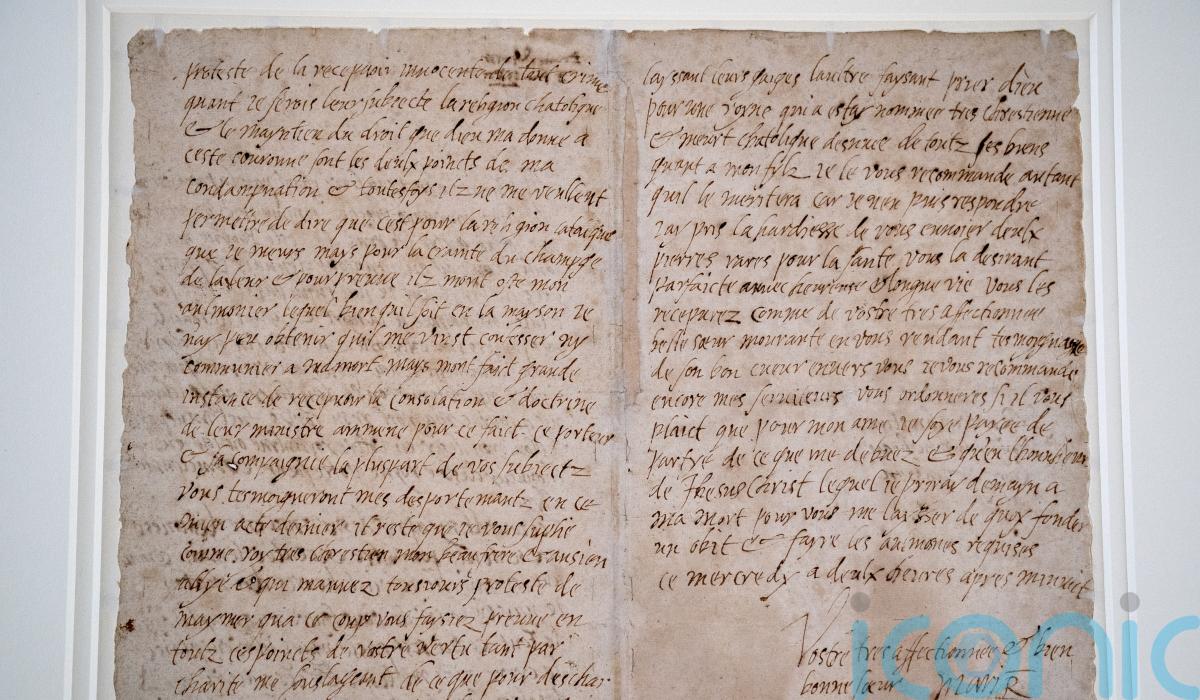 proteste de la recepvoir innocente de tout crime
quant je serois leur subjecte la religion chatolique
& le mayntien du droit que dieu ma donne a
ceste couronne sont les deulx poincts de ma
condampnation & toutesfoys ilz ne me veullent
permettre de dire que cest pour la religion catolique
que je meurs mays pour la crainte du champge
de la leur & pour preuve ilz mont oste mon
aulmonier lequel bien quil soit en la mayson je
nay peu obtenir quil me vinst confesser ny
communier a ma mort mays mont faict grande
instance de recepvoir la consolation & doctrine
de leur ministre ammene pour ce faict ce porteur
& sa compaignie la pluspart de vos subjectz
vous tesmoigneront mes desportemantz en ce
mien acte dernier il reste que je vous suplie
comme roy tres chrestien mon beau frere & ansien
allye & qui mauvez tousjours proteste de
maymer qua ce coup vous faysiez preuve en
toutz ces poincts de vostre vertu tant par
charite me soulageant de ce que pour deschar
layssant leurs gaiges laultre faysant prier dieu
pour une royne qui a estay nommee tres chrestienne
& meurt chatolique desnuee de toutz ses biens
quant a mon filz je le vous recommande autant
quil le meritera car je nen puis respondre
jay pris la hardiesse de vous envoier deulx
pierres rares pour la sante vous la desirant
parfaicte avvec heureuse & longue vie vous les
recepvrez comme de vostre tres affectionnee
belle soeur mourante en vous rendant tesmoygnage
de son bon cueur envers vous je vous recommande
encore mes serviteurs vous ordonneres si il vous
plaict que pour mon ame je soye payee de
partye de ce que me debvez & quen lhonneur
de Jhesus Christ lequel je priray demayn a
ma mort pour vous me laisser de quoy fonder
un obit & fayre les aulmones requises
ce mercredy a deulx heures apres minuict
Vostre tres affectionnee & bien
bonne soeur MariR
iconic